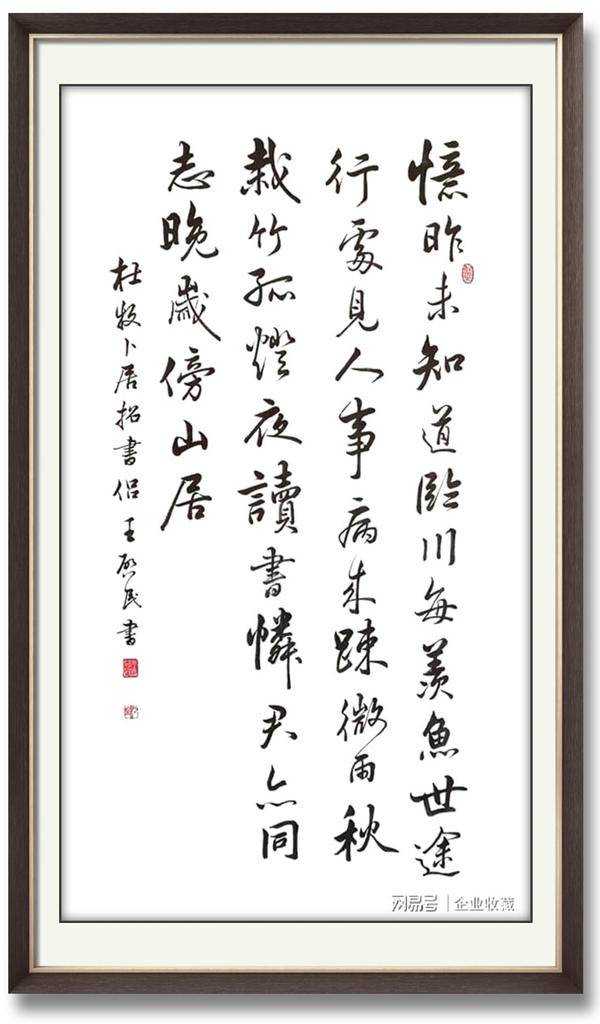 憶昨未知道臨川每羨魚世途
行處見人事病来踈微雨秋
栽竹孤燈夜讀書憐君亦同
志晚歲傍山居
杜牧卜居招書侣 王啟民書
网易号 | 企业收藏